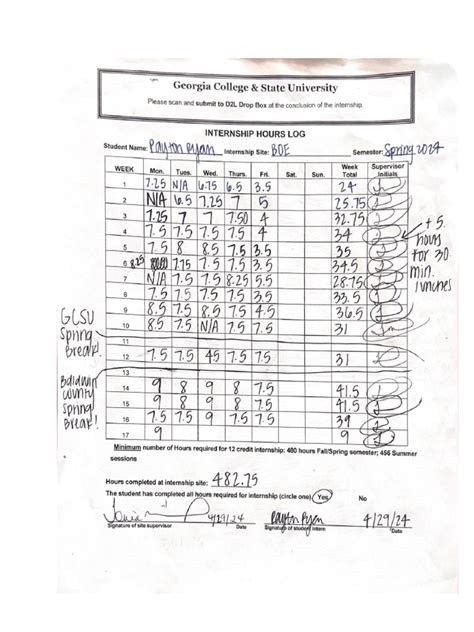 Georgia College & State University
Please scan and submit to D2L Drop Box at the conclusion of the internship.
INTERNSHIP HOURS LOG
Student Name: Payton Ryan Internship Site: BOE Semester: Spring 2024
WEEK Mon. Tues. Wed. Thurs. Fri. Sat. Sun. Week Total Supervisor Initials
1 7.25 N/A 6.75 6.5 3.5 24
2 N/A 6.5 7.25 7 5 25.75
3 7.25 7 7 7.50 4 32.75
4 7.5 7.5 7.5 7.5 4 34
5 7.5 8 8.5 7.5 3.5 35
6 8.25 7.75 7.5 7.5 3.5 34.5
7 N/A 7.5 7.5 8.25 5.5 28.75
8 7.5 7.5 7.5 7.5 3.5 33.5
9 8.5 7.5 8.5 7.5 4.5 36.5
10 8.5 7.5 N/A 7.5 7.5 31
11
12 7.5 7.5 7.5 7.5 31
13
14 9 8 9 8 7.5 41.5
15 9 8 9 8 7.5 41.5
16 7.5 7.5 9 7.5 7.5 39
17 9 9
+ .5
hours
for 30
min.
lunches
GCSU
Spring
Break!
Baldwin
County
Spring
Break!
Minimum number of Hours required for 12 credit internship: 480 hours Fall/Spring semester; 456 Summer
sessions
Hours completed at internship site: 482.75
The student has completed all hours required for internship (circle one) Yes No
4/29/24 Payton Ryan 4/29/24
Signature of site supervisor Date Signature of student intern Date